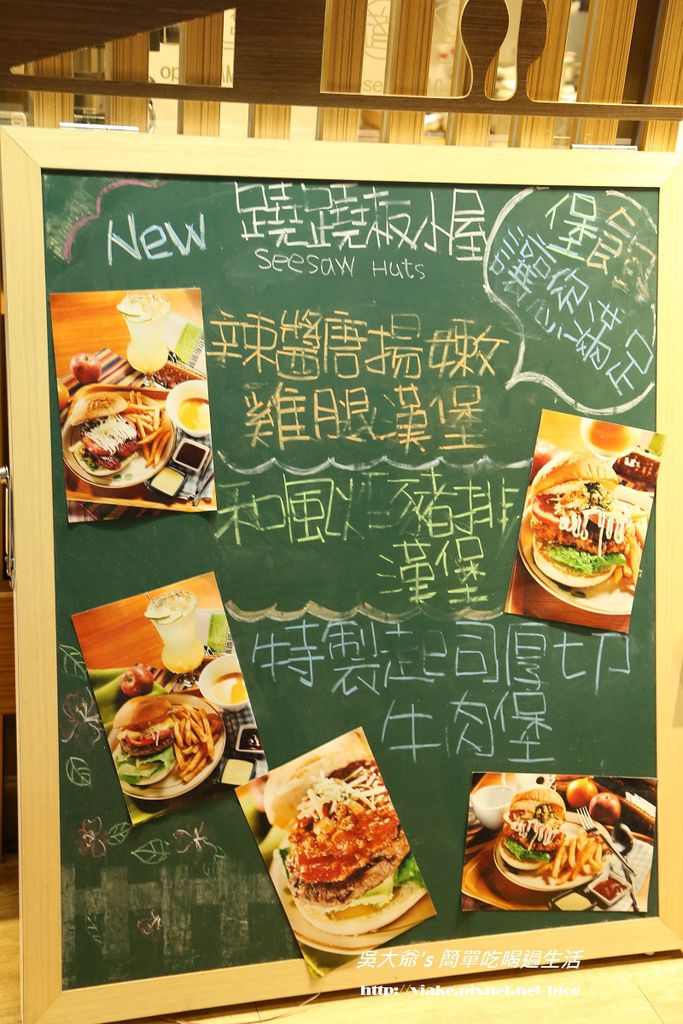 New 蹺蹺板小屋
seesaw Huts
堡飽
讓你滿足
辣醬唐揚嫩
雞腿漢堡
和風 豬排
漢堡
特製起司厚切
牛肉堡
吳大爺's 簡單吃喝過生活
http://viake.pixnet.net/blog